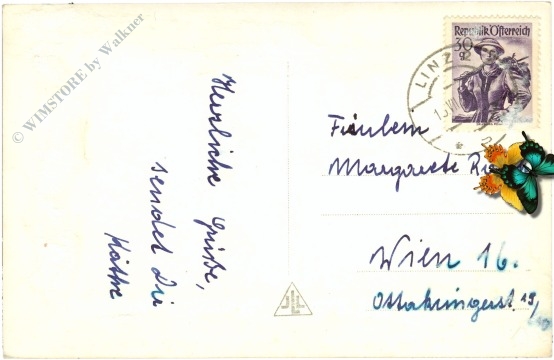 © WIMSTORE by Walkner
Herzliche Grüße,
sendet Dir
Käthe
Republik Österreich
30
LINZ
Fräulein
Margarete
Wien 16.
Ottakringerst. 19/